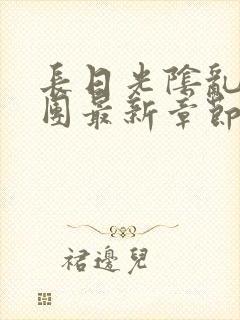 長日光陰亂
團最新章節
裙邊兒